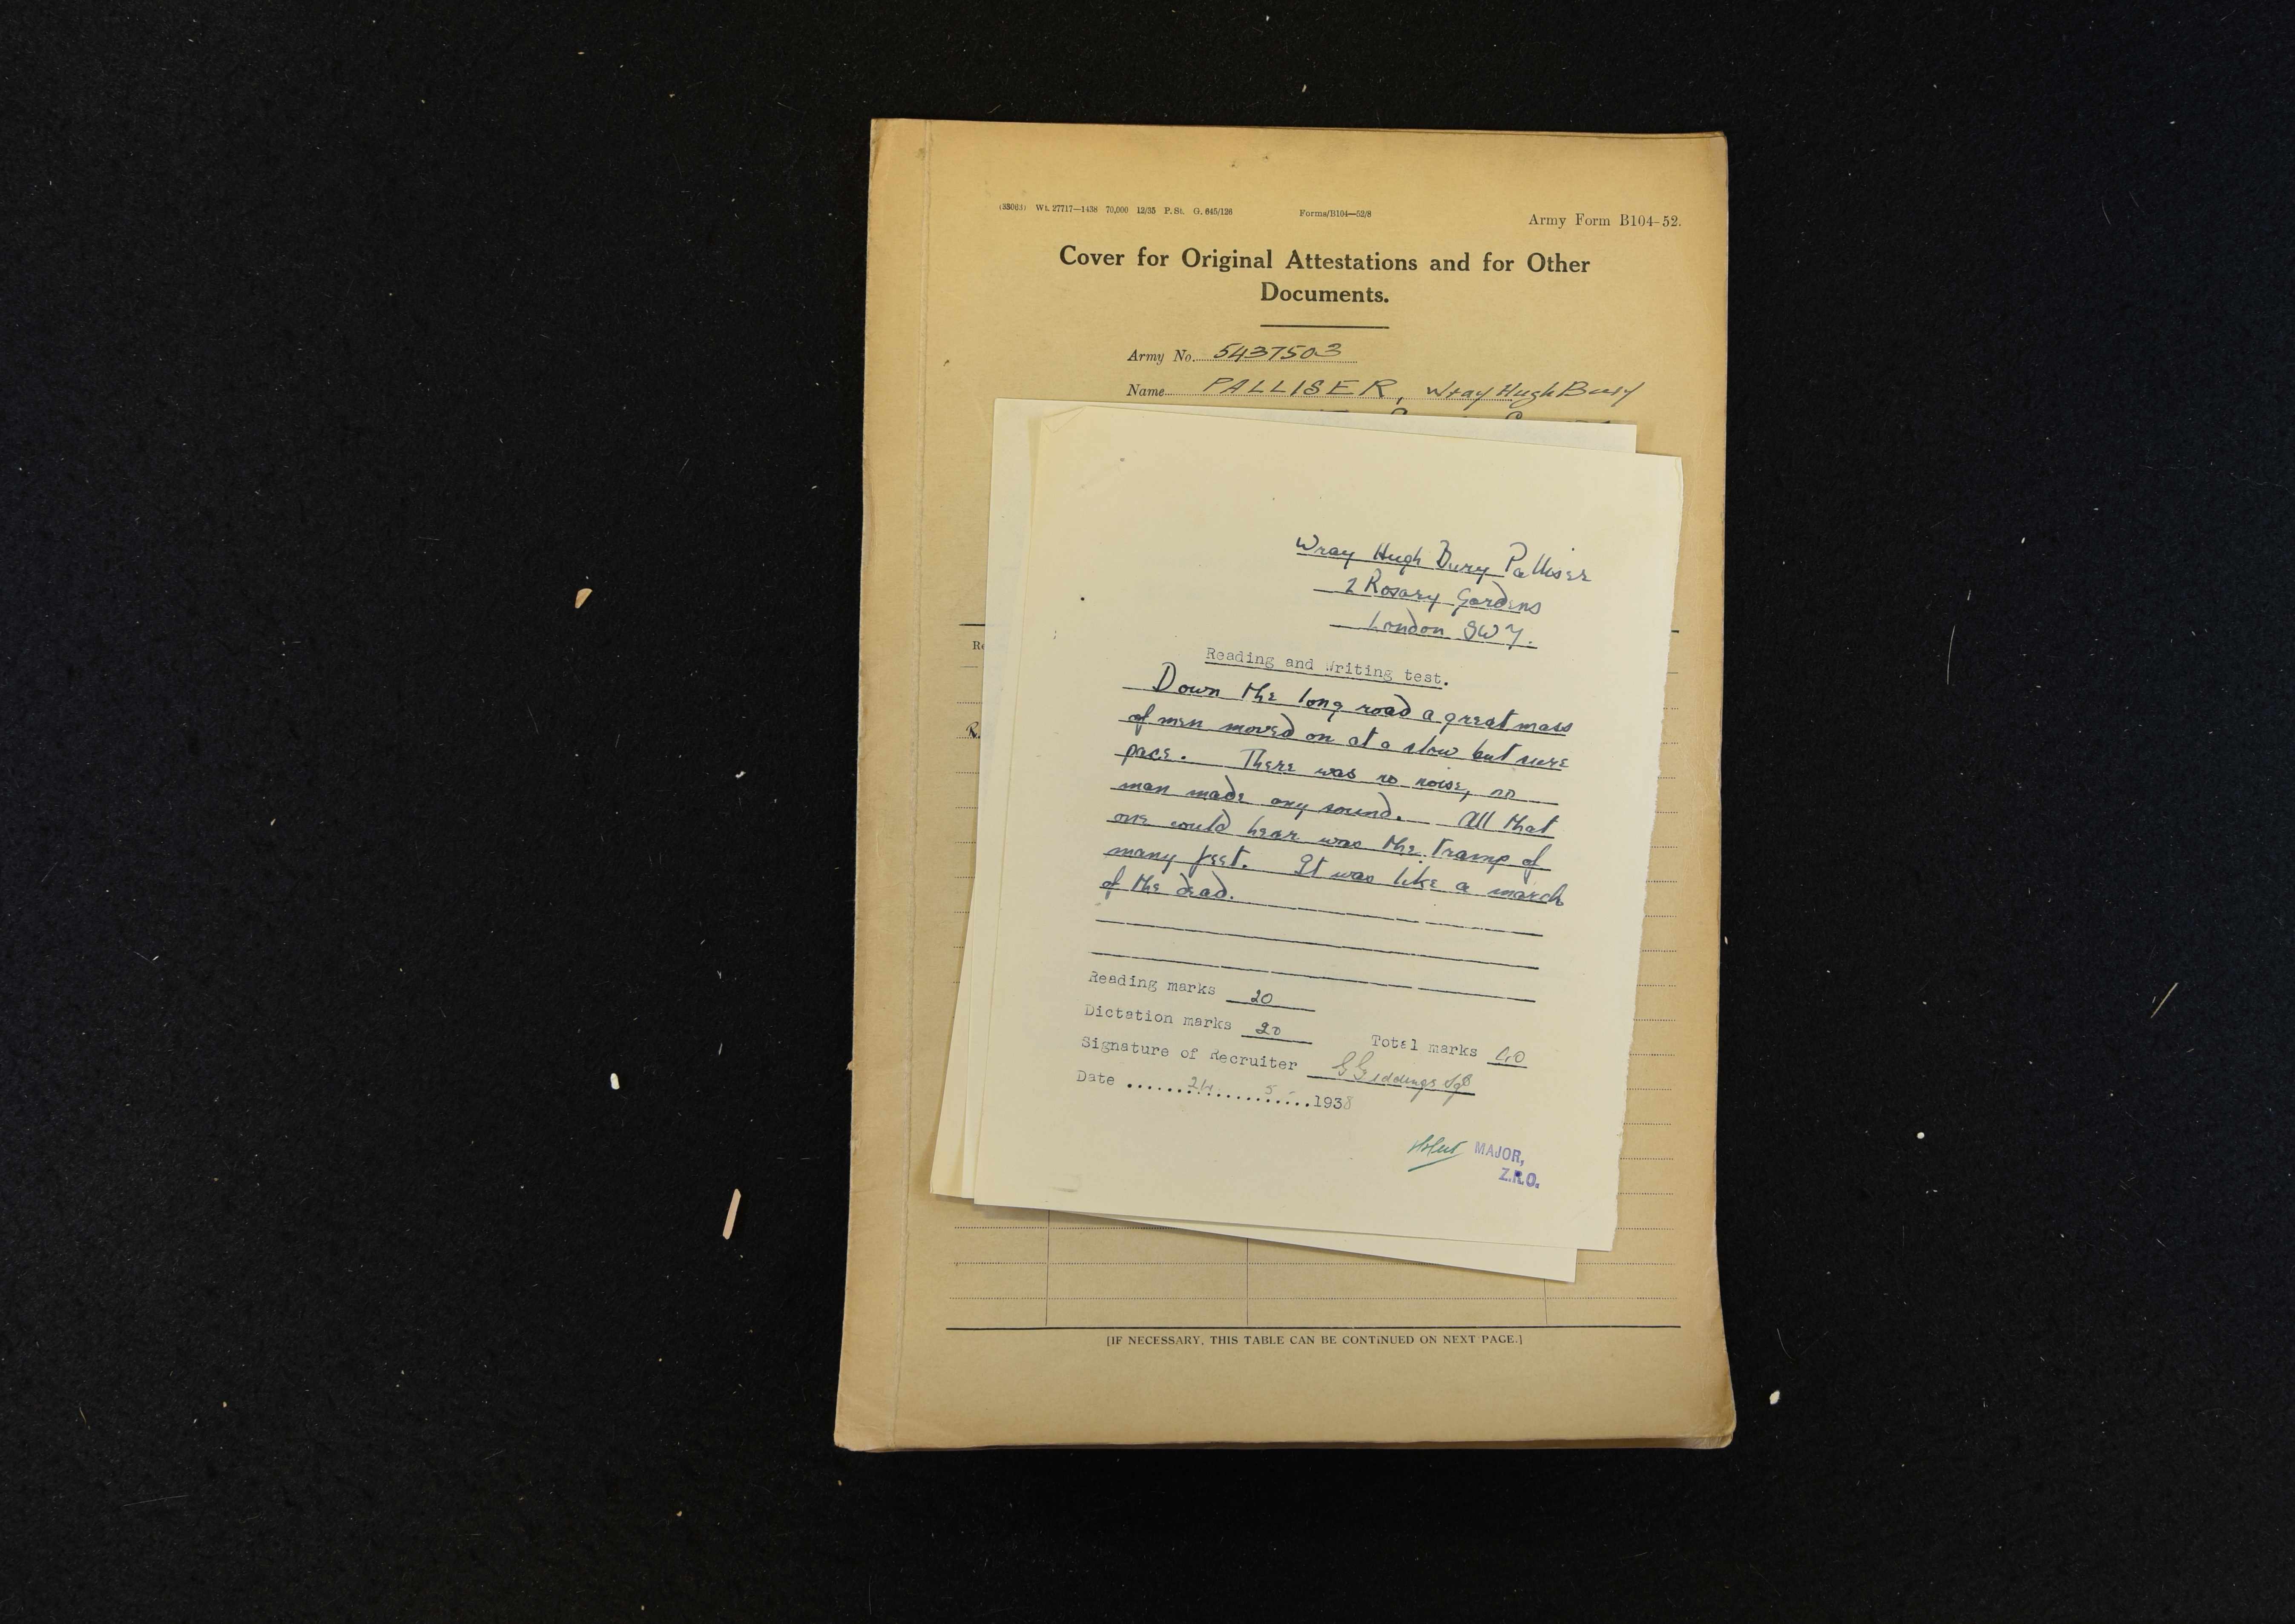 (33063) Wt. 27717—1438 70,000 12/35 P. St. G. 645/126 Forms/B104—52/8 Army Form B104-52.
Cover for Original Attestations and for Other
Documents.
Army No. 5437503
Name PALLISER, Wray Hugh Bury
Wray Hugh Bury Palliser
2 Rosary Gardens
London SW7.
Reading and Writing test.
Down the long road a great mass
of men moved on at a slow but sure
pace. There was no noise, no
man made any sound. All that
one could hear was the tramp of
many feet. It was like a march
of the dead.
Reading marks 20
Dictation marks 20
Total marks 40
Signature of Recruiter G Giddings Sgt
Date ......24......5......1938
MAJOR,
Z.R.O.
[IF NECESSARY, THIS TABLE CAN BE CONTINUED ON NEXT PAGE.]